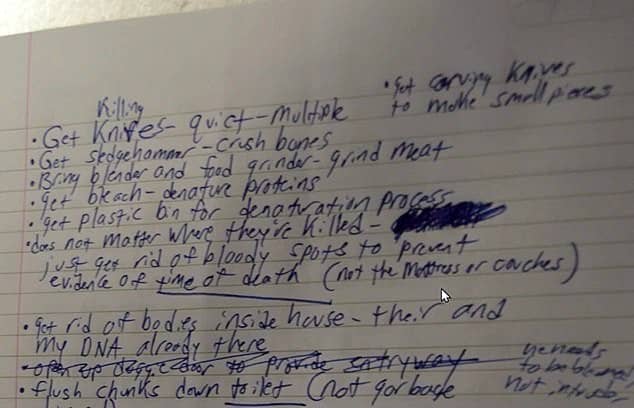 Killing
• Get Knives - quiet - multiple
• get carving knives
to make small pieces
• Get sledgehammer - crush bones
• Bring blender and food grinder - grind meat
• get bleach - denature proteins
• get plastic bin for denaturation process
• does not matter where they're killed -
just get rid of bloody spots to prevent
evidence of time of death (not the mattress or couches)
• get rid of bodies inside house - their and
my DNA already there
• open up doggie door to provide entryway
he needs
to be blamed,
not intruder
• flush chunks down toilet (not garbage